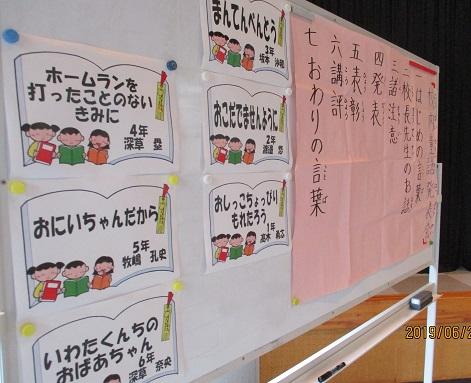 ホームランを
打ったことのない
きみに
4年
深草 塁
おにいちゃんだから
5年
牧嶋 孔史
いわたくんちの
おばあちゃん
6年
深草 奈央
まんてんべんとう
3年
坂本
おこだでませんように
2年
渡邉 悠
おしっこちょっぴり
もれたろう
1年
高木
一 はじめの言葉
二 校長先生のお話
三 諸注意
四 発表
五 表彰
六 講評
七 おわりの言葉
2019/06/2